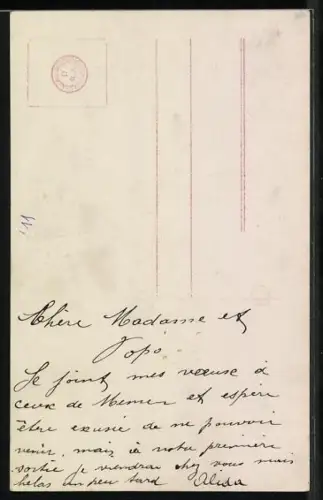 '11
Chère Madame et
Popo
Je joint mes vœux à
ceux de Mémer et espère
être excusée de ne pouvoir
venir, mais à notre première
sortie je viendrai chez vous mais
helas un peu tard Alida